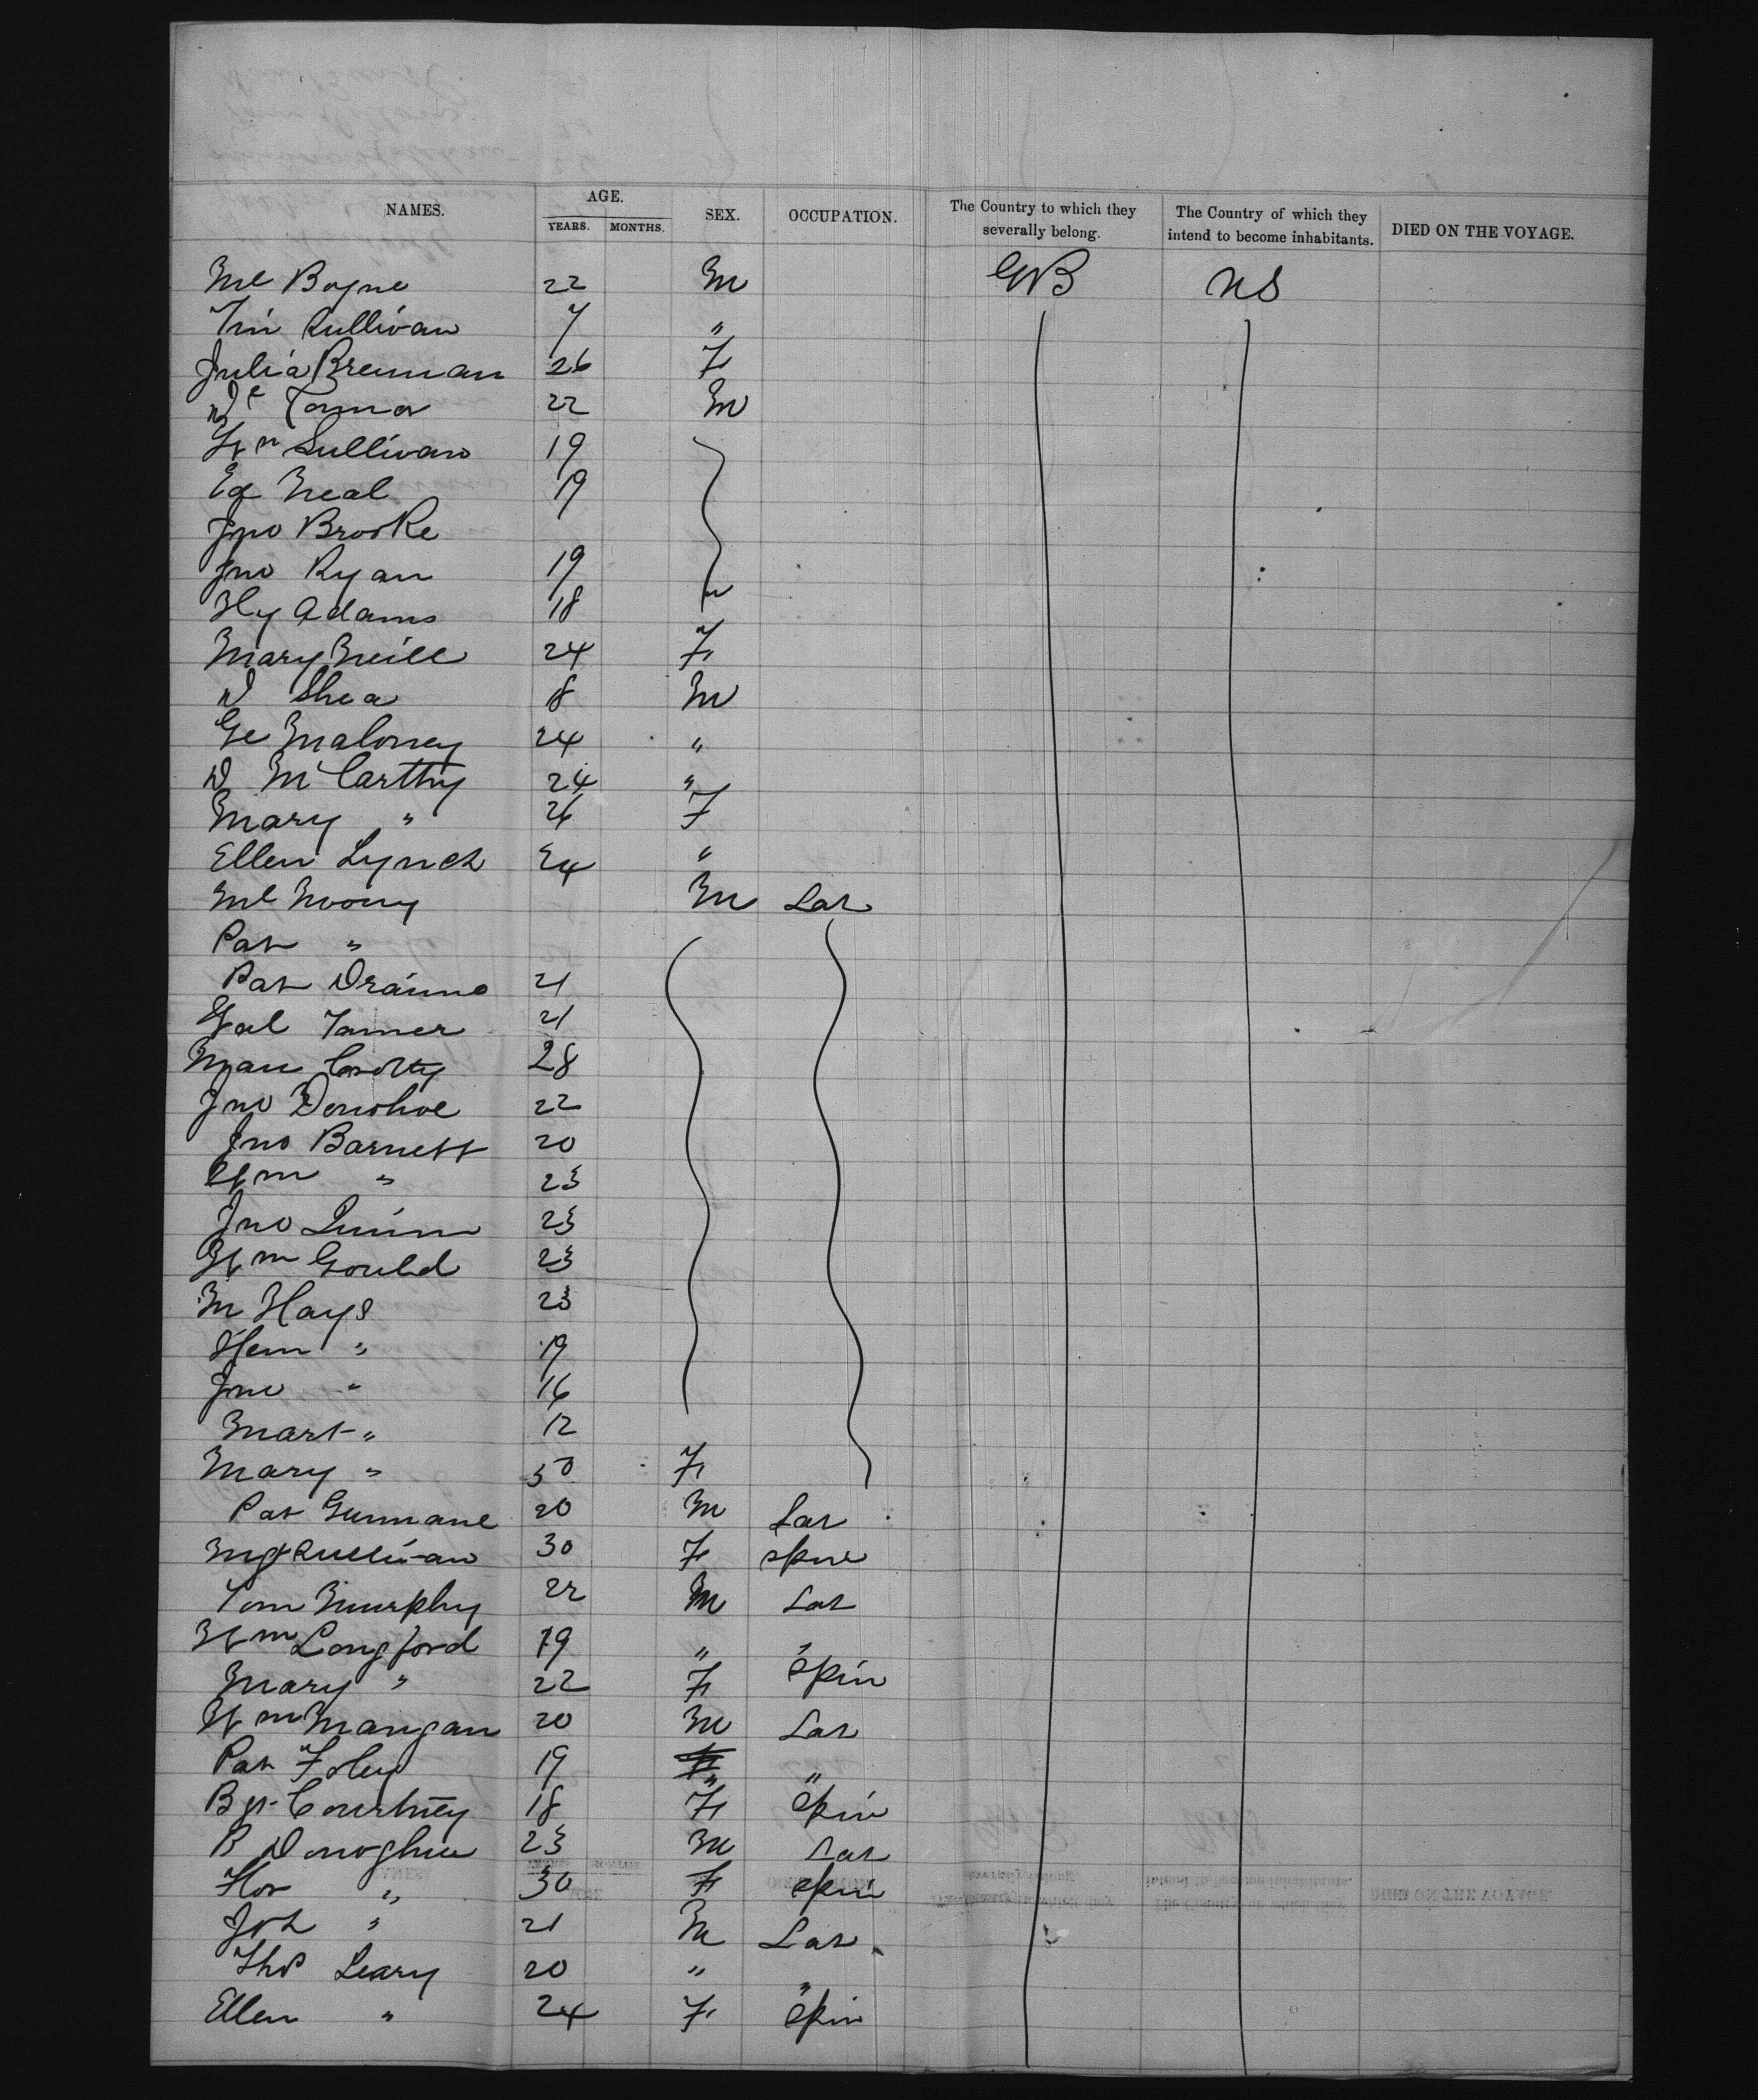 NAMES. AGE. SEX. OCCUPATION. The Country to which they severally belong. The Country of which they intend to become inhabitants. DIED ON THE VOYAGE.
YEARS. MONTHS.
Ml Boyne 22 M GB US
Tim Sullivan 7 "
Julia Brennan 26 F
Connor 22 M
Wm Sullivan 19
Ed Neal 19
Jno Brooke
Jno Ryan 19
Hy Adams 18
Mary Neill 24 F
D Shea 18 M
Ge Maloney 24 "
D McCarthy 24 "
Mary " 26 F
Ellen Lynch 24 "
Ml Moony M Lar
Pat "
Pat 21
21
Crotty 28
Jno Donohoe 22
Jno Barnett 20
Wm " 23
Jno Quinn 23
Wm Gould 23
M Hays 23
" 19
Jno " 16
Mart " 12
Mary " 50 F
Pat Gunnane 20 M Lar
Mgt Sullivan 30 F Spin
Tom Murphy 22 M Lar
Wm Longford 19 " "
Mary " 22 F Spin
Wm Mangan 20 M Lar
Pat Foley 19 " "
Bgt Courtney 18 F Spin
P Donoghue 23 M Lar
Hor " 30 F Spin
Joh " 21 M Lar
Thos Leary 20 " "
Ellen " 24 F Spin